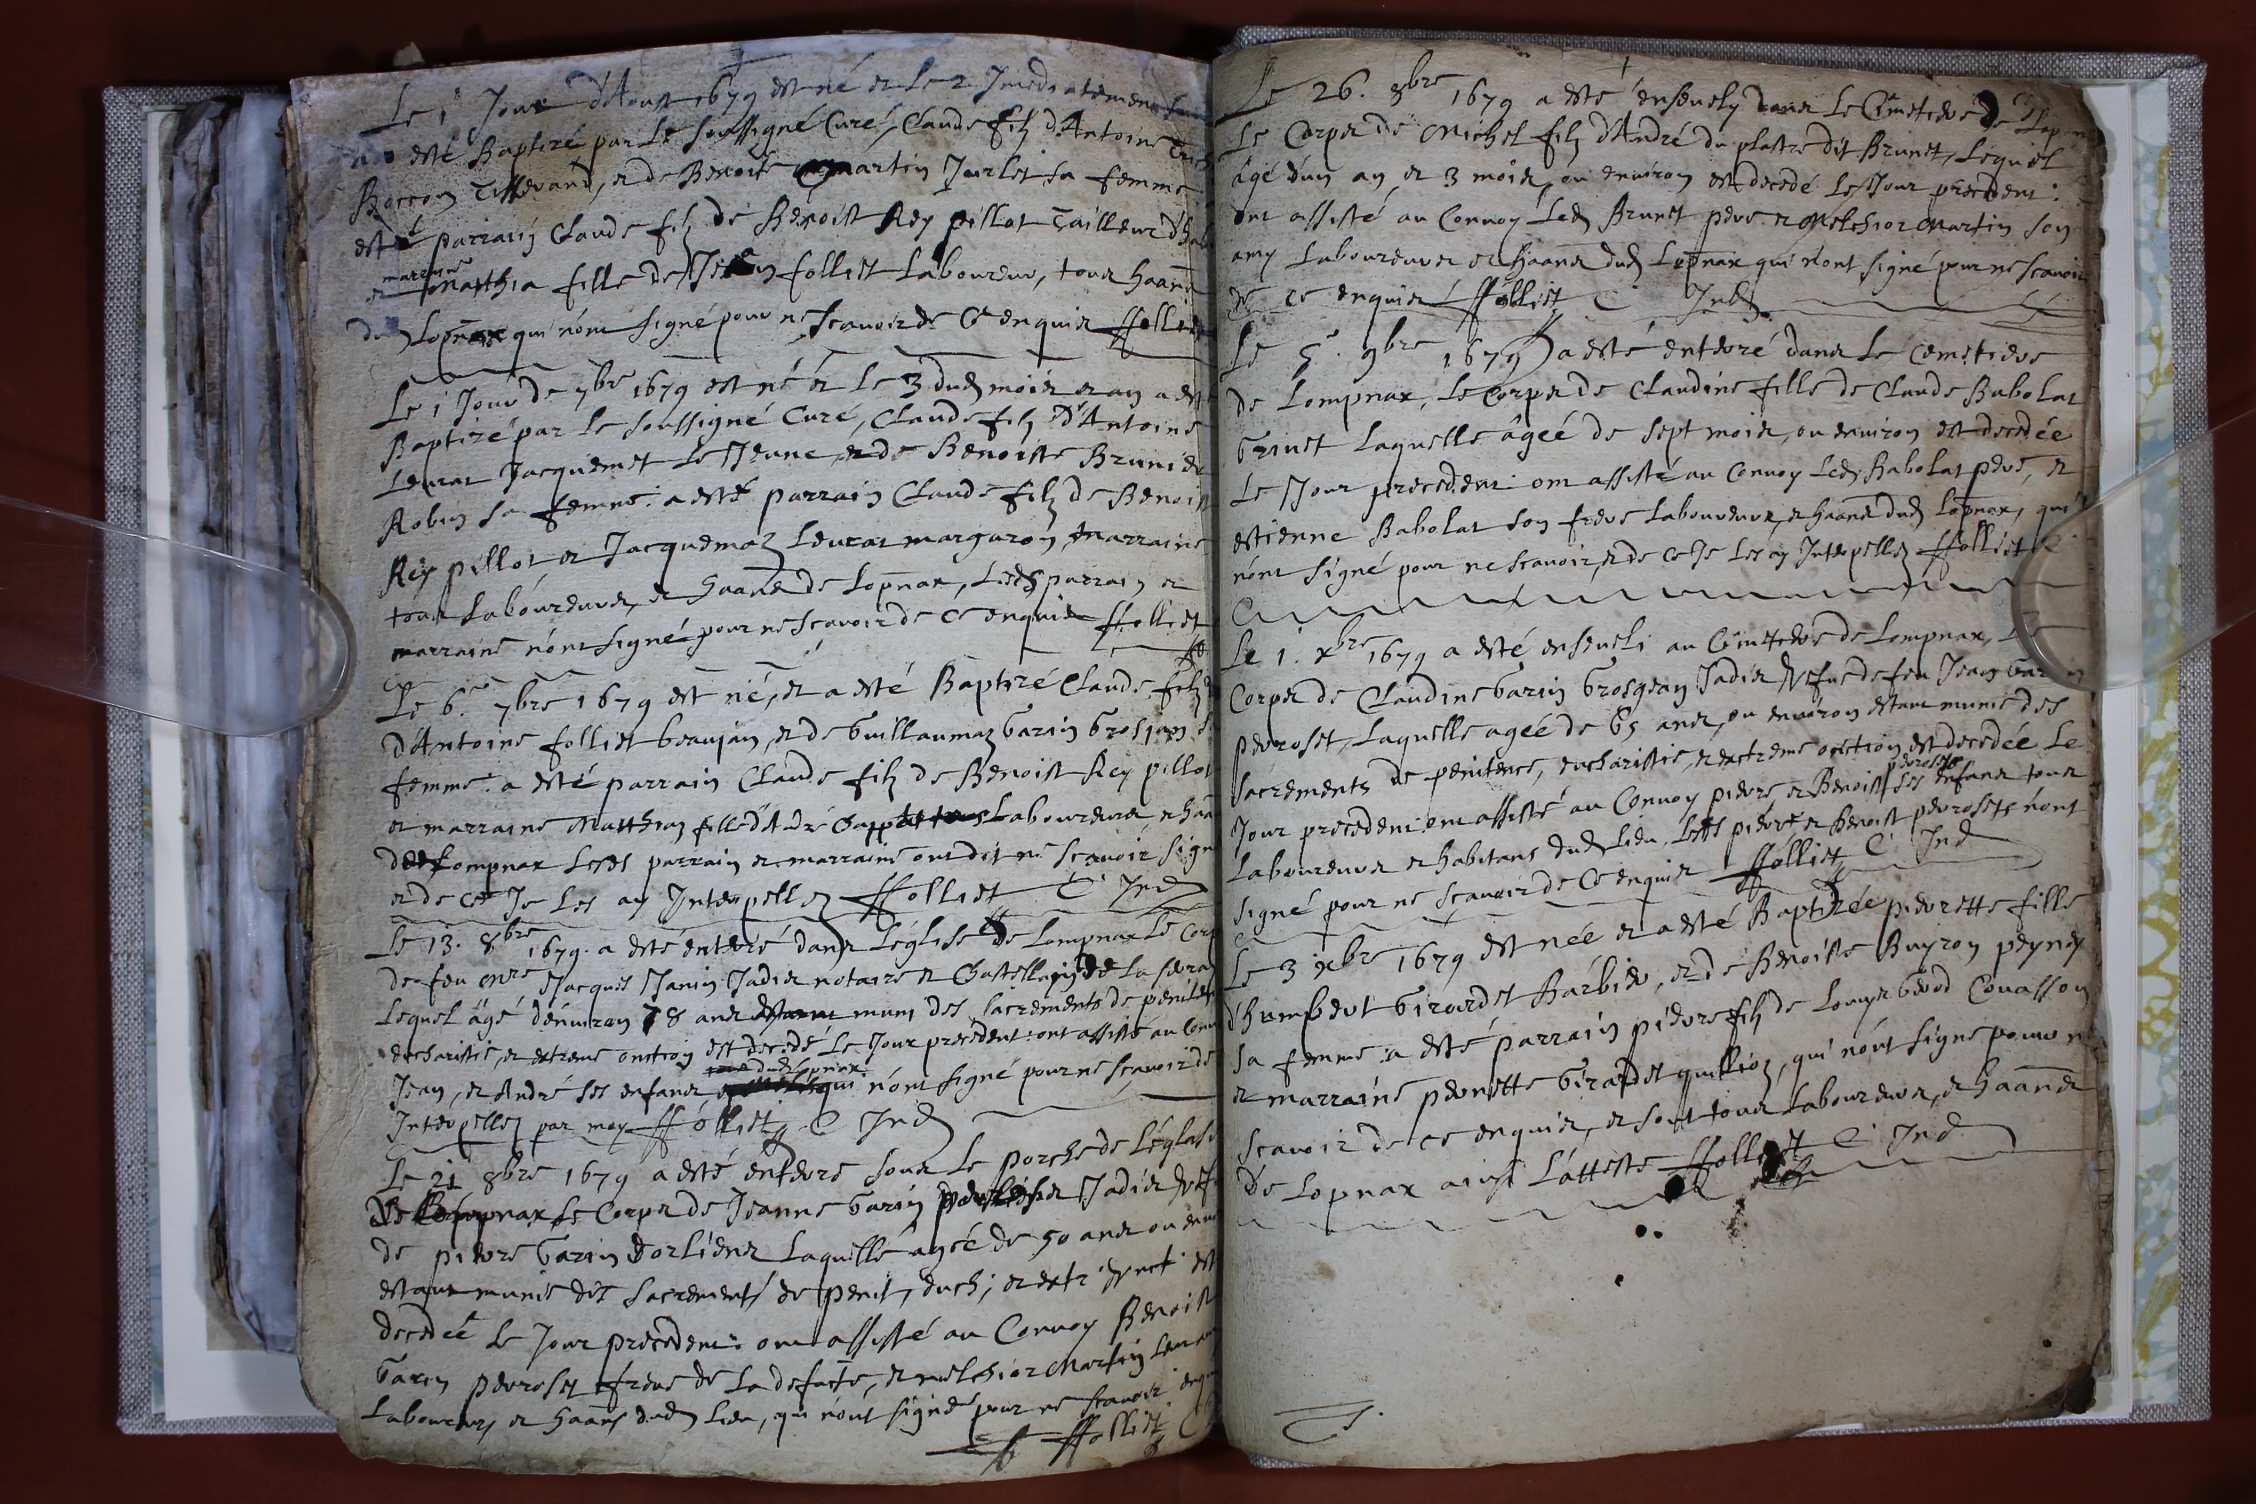 Le 1r Jour d'Aoust 1679 est né et le 2 Imediatement
a esté Baptizé par Le soussigné Curé, Claude filz d'Antoine
Boccon Tisserand, et de Benoite Martin Jourlet sa femme
esté parrain Claude filz de Benoist Rey pillot Tailleur d'hab
et marraine Matthia fille de Folliet Laboureur, tous haans
dud Lopnax qui n'ont signé pour ne scavoir de ce enquis ffolliet
Le 1 Jour de 7bre 1679 est né et Le 3 dud mois et an a esté
Baptizé par Le soussigné Curé, Claude filz d'Antoine
Leurat Jacquemet Le Jeune, et de Benoiste Brunier
Robin sa femme: a esté parrain Claude filz de Benoist
Rey pillot et Jacquemaz Leurat margaron, marraine
tous Laboureurs, et haans de Lopnax, Lesds parrain et
marraine n'ont signé pour ne scavoir de ce enquis ffolliet
Le 6e 7bre 1679 est né, et a esté Baptizé Claude filz
d'Antoine folliet beaujain, et de Guillaumaz Garin Grosjean
femme. a esté parrain Claude filz de Benoist Rey pillot
et marraine Matthiaz fille d'André Laboureurs et haa
de Lompnax Lesds parrain et marraine ont dit ne scavoir sign
et de ce Je Les ay Interpellez ffolliet C Ind
Le 13. 8bre 1679. a esté enterré dans L'église de Lompnax Le Corp
de feu mre Jacques Janin Jadis notaire et Chastellain de La serra
Lequel âgé d'environ 78 ans estant muni des sacrements de peniten
eucharistie, et extreme onction est decedé Le Jour precedent: ont assisté au Conv
Jean, et André ses enfans dud Lopnax qui n'ont signé pour ne scavoir de
Interpellez par moy ffolliet C Ind
Le 21 8bre 1679 a esté enterré sous Le porche de L'églis
de Lompnax Le Corps de Jeanne Garin Jadis vefv
de pierre Garin dorlienes Laquelle agée de 50 ans ou envi
estant munie des sacrements de penit, euch; et extr: unct: est
decedée Le Jour precedent: ont assisté au Convoy Benoist
Garin perroset frere de La defuncte, et melchior Martin
Laboureurs et haans dud Lieu, qui n'ont signé pour ne scavoir enq
ffolliet C
Le 26. 8bre 1679 a esté ensevely dans Le Cimetiere de Lopn
Le Corps de Michel filz d'André du plastre dit Brunet, Lequel
âgé d'un an et 3 mois, ou environ est decedé Le Jour precedent:
ont assisté au Convoy Led Brunet pere et Melchior Martin son
amy Laboureurs et haans dud Lopnax qui n'ont signé pour ne scavoir
de ce enquis ffolliet C Ind
Le 5. 9bre 1679 a esté enterré dans Le Cemetiere
de Lompnax, Le Corps de Claudine fille de Claude Babolat
Grinet Laquelle âgée de sept mois, ou environ est decedée
Le Jour precedent ont assisté au Convoy Led Babolat pere, et
estienne Babolat son frere Laboureurs, et haans dud Lopnax, qui
n'ont signé pour ne scavoir, et de ce Je Les ay Interpellez ffolliet C
Le 1. xbre 1679 a esté enseveli au Cimetiere de Lompnax, Le
Corps de Claudine Garin Grosgean Jadis vefve de feu Jean Garin
perroset, Laquelle agée de 65 ans, ou environ estant munie des
sacrements de penitence, eucharistie, et extreme onction est decedée Le
Jour precedent ont assisté au Convoy pierre et Benoist perrosets ses enfans tous
Laboureurs et habitans dud Lieu, Lesds pierre et Benoist perrosets n'ont
signé pour ne scavoir de ce enquis ffolliet C Ind
Le 3 xbre 1679 est née et a esté Baptizée pierrette fille
d'humbert Girardet Barbier, et de Benoiste Buyron peyney
sa femme: a esté parrain pierre filz de Louys Genod Couasson
et marraine pernette Girardet quillioz, qui n'ont signé pour ne
scavoir de ce enquis, et sont tous Laboureurs, et haans
de Lopnax ainsi L'atteste ffolliet C Ind